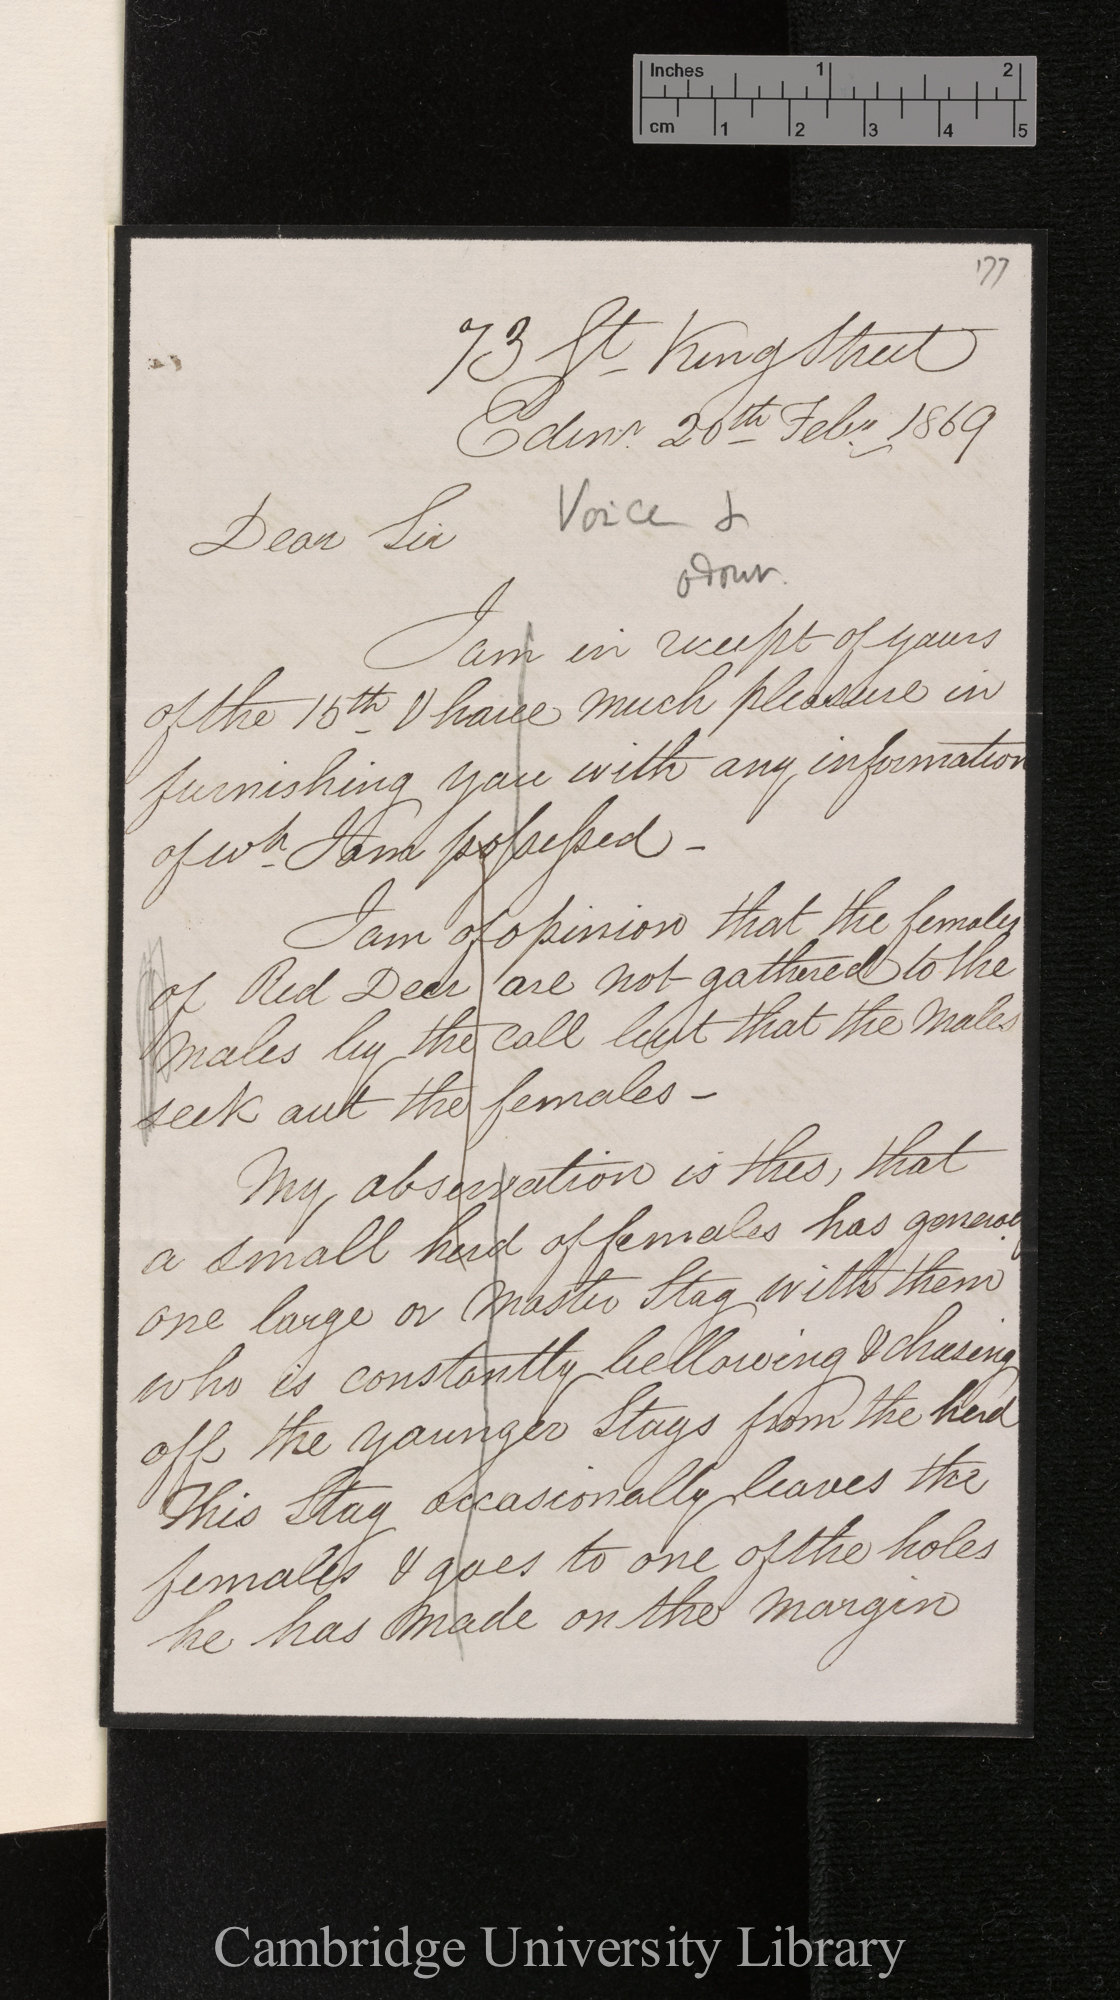 Inches 1 2
cm 1 2 3 4 5
177
73 Gt King Street
Edinr. 20th Feby. 1869
Voice &
Dear Sir
odour.
I am in receipt of yours
of the 15th & have much pleasure in
furnishing you with any information
of wh. I am possessed -
I am of opinion that the females
of Red Deer are not gathered to the
Males by the call but that the Males
seek out the females -
My observation is this, that
a small herd of females has generally
one large or Master Stag with them
who is constantly bellowing & chasing
off the younger Stags from the herd
This Stag occasionally leaves the
females & goes to one of the holes
he has made on the margin
Cambridge University Library